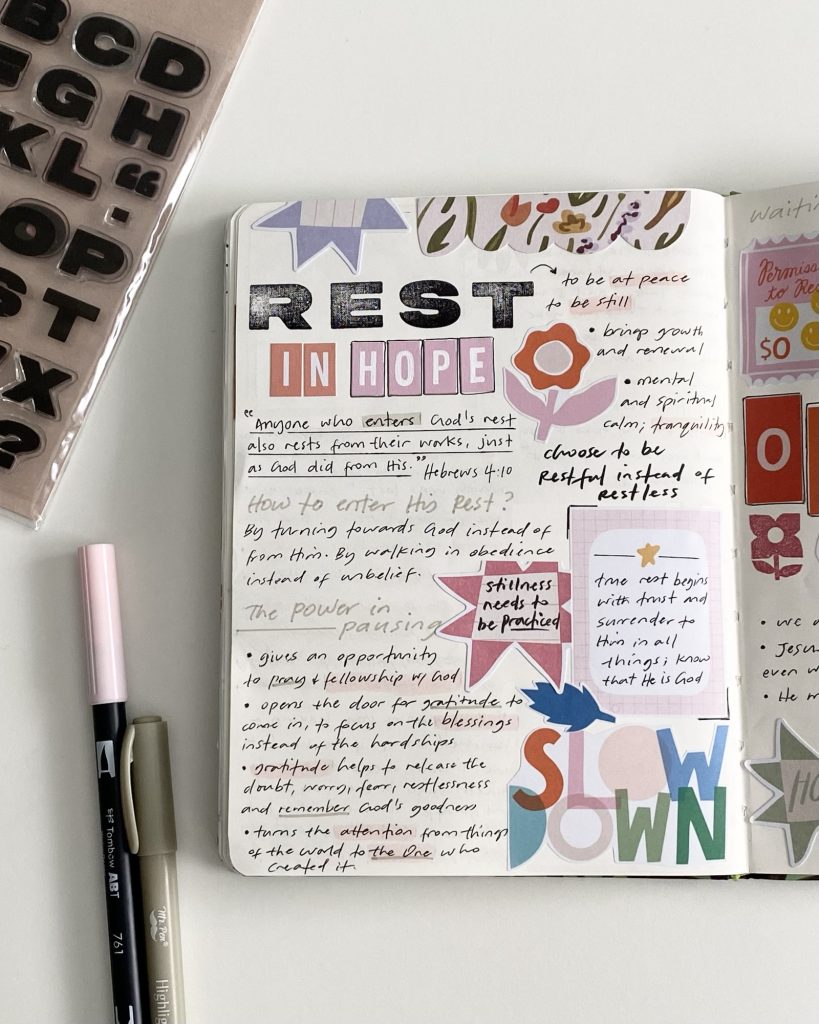 B C D
G H
K L “
O P .
S T
X
?
REST
IN HOPE
to be at peace
to be still
• brings growth
and renewal
• mental
and spiritual
calm; tranquility
choose to be
restful instead of
restless
"Anyone who enters God's rest
also rests from their works, just
as God did from His." Hebrews 4:10
How to enter His Rest?
By turning towards God instead of
from Him. By walking in obedience
instead of unbelief.
The power in
pausing
stillness
needs to
be practiced
true rest begins
with trust and
surrender to
Him in all
things; know
that He is God
• gives an opportunity
to pray & fellowship w/ God
• opens the door for gratitude to
come in, to focus on the blessings
instead of the hardships
• gratitude helps to release the
doubt, worry, fear, restlessness
and remember God's goodness
• turns the attention from things
of the world to the One who
created it.
SLOW
DOWN
Permiss
to Re
$0
O
• we
• Jesu
even w
• He
HO
Tombow ABT
761
Mr. Pen®
Highlig